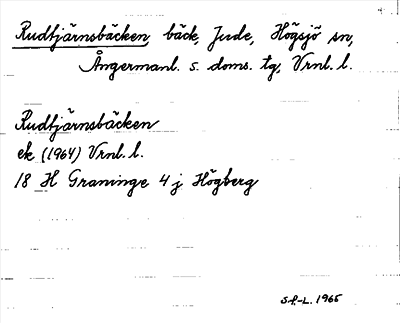 Rudtjärnsbäcken, bäck, Jude, Högsjö sn,
Ångermanl. s. doms. tg, Vrnl. l.
Rudtjärnsbäcken
ek (1964) Vrnl. l.
18 H Graninge 4 j Högberg
S.f.-L. 1965